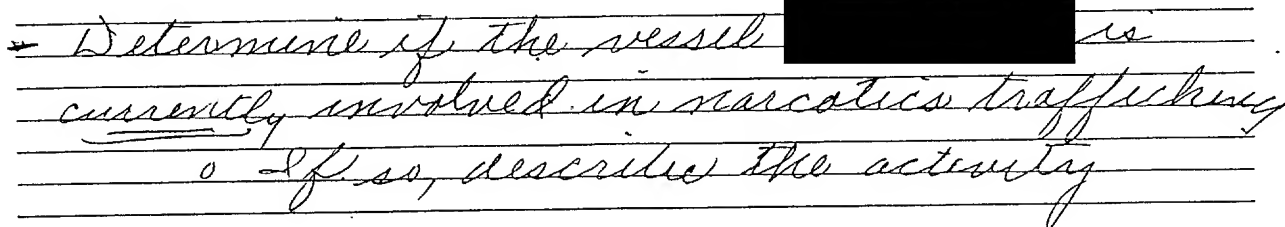 - Determine if the vessel is
currently involved in narcotics trafficking
o If so, describe the activity